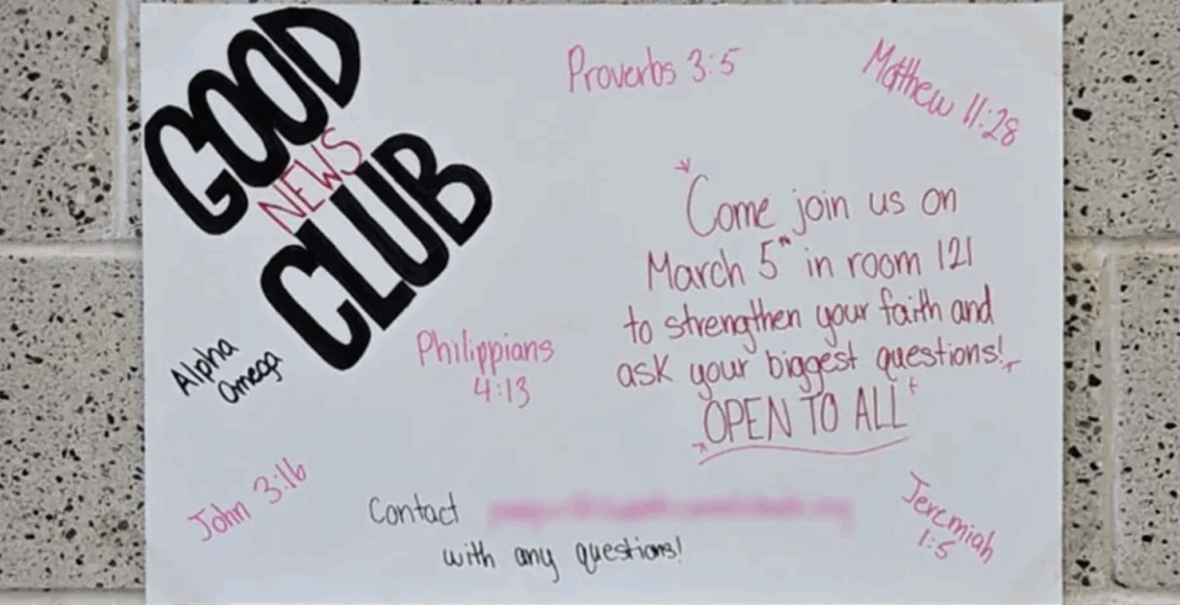 GOOD
NEWS
CLUB
Alpha
Omega
Proverbs 3:5
Matthew 11:28
Come join us on
March 5th in room 121
to strengthen your faith and
ask your biggest questions!
OPEN TO ALL
Philippians
4:13
John 3:16
Contact
with any questions!
Jeremiah
1:5